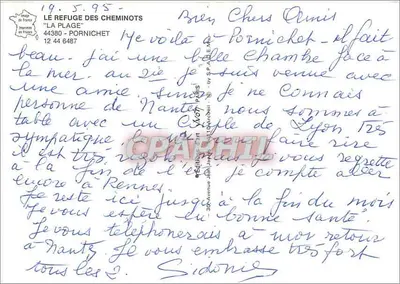 19.5.95-
LE REFUGE DES CHEMINOTS
"LA PLAGE"
44380 - PORNICHET
12 44 6487
Bien Chers Amis
Me voilà à Pornichet il fait
beau. J'ai une belle chambre face à
la mer. au 2ie je suis venue avec
une amie. sinon je ne connais
personne de Nantes nous sommes à
table avec un Couple de Lyon, très
sympatique le faire rire
il est très vous regrette
à la fin de l'été je compte aller
encore à Rennes
Je reste ici jusqu'à la fin du mois
Je vous espère en bonne santé
Je vous téléphonerais à mon retour
à Nantes Je vous embrasse très fort
tous les 2. Sidonie
CPARHIL